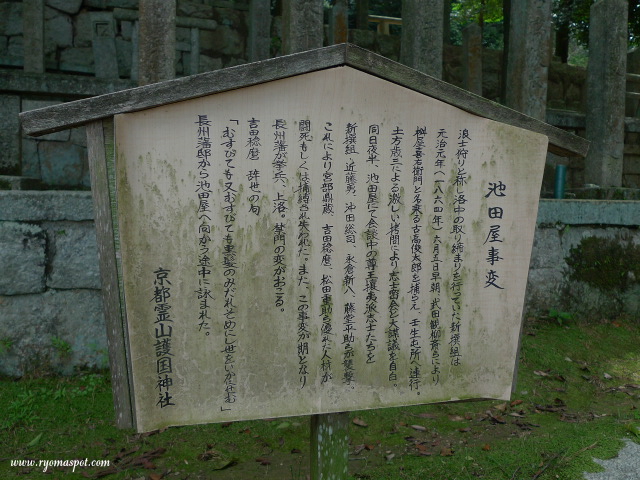 池田屋事変
浪士狩りと称し洛中の取り締まりを行っていた新撰組は
元治元年(一八六四年)六月五日早朝、武田観柳斎らにより
桝屋喜右衛門と名乗る古高俊太郎を捕らえ、壬生屯所へ連行。
土方歳三による激しい拷問により志士密会と大謀議を自白。
同日夜半、池田屋にて会談中の尊王攘夷派志士たちを
新撰組、近藤勇、沖田総司、永倉新八、藤堂平助らが襲撃。
これにより宮部鼎蔵、吉田稔麿、松田重助ら優れた人材が
闘死もしくは捕縛され失われた。また、この事変が期となり
長州藩が挙兵、上洛。禁門の変がおこる。
吉田稔麿 辞世の句
「むすびても又むすびても黒髪のみだれそめにし世をいかにせむ」
長州藩邸から池田屋へ向かう途中に詠まれた。
京都霊山護国神社
www.ryomaspot.com